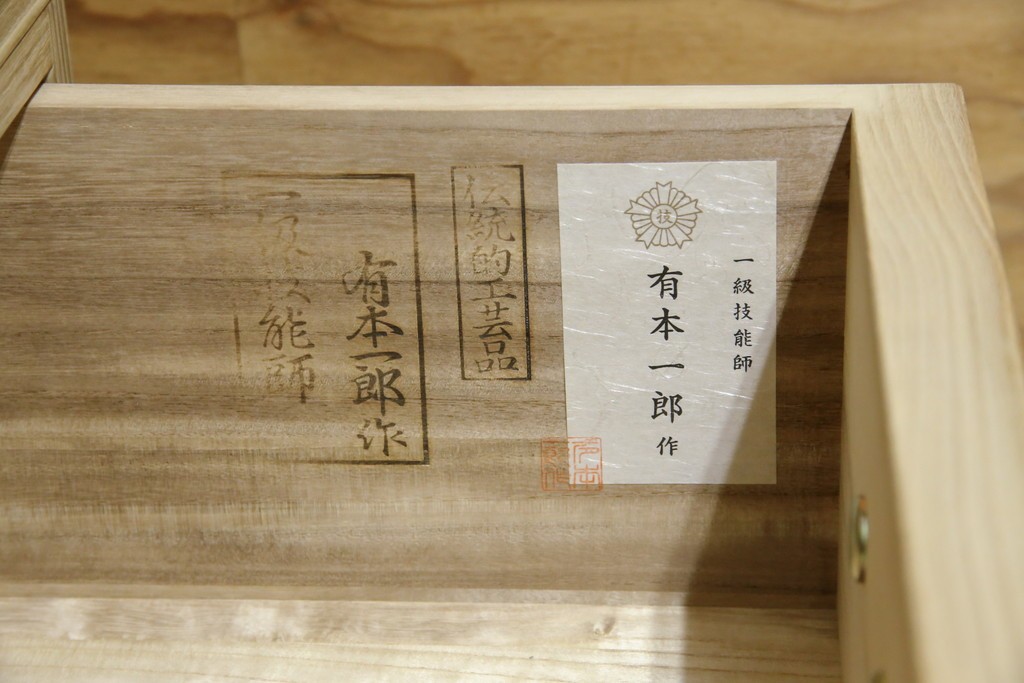 技
一級技能師
有本一郎作
伝統的工芸品
有本一郎作
一級技能師